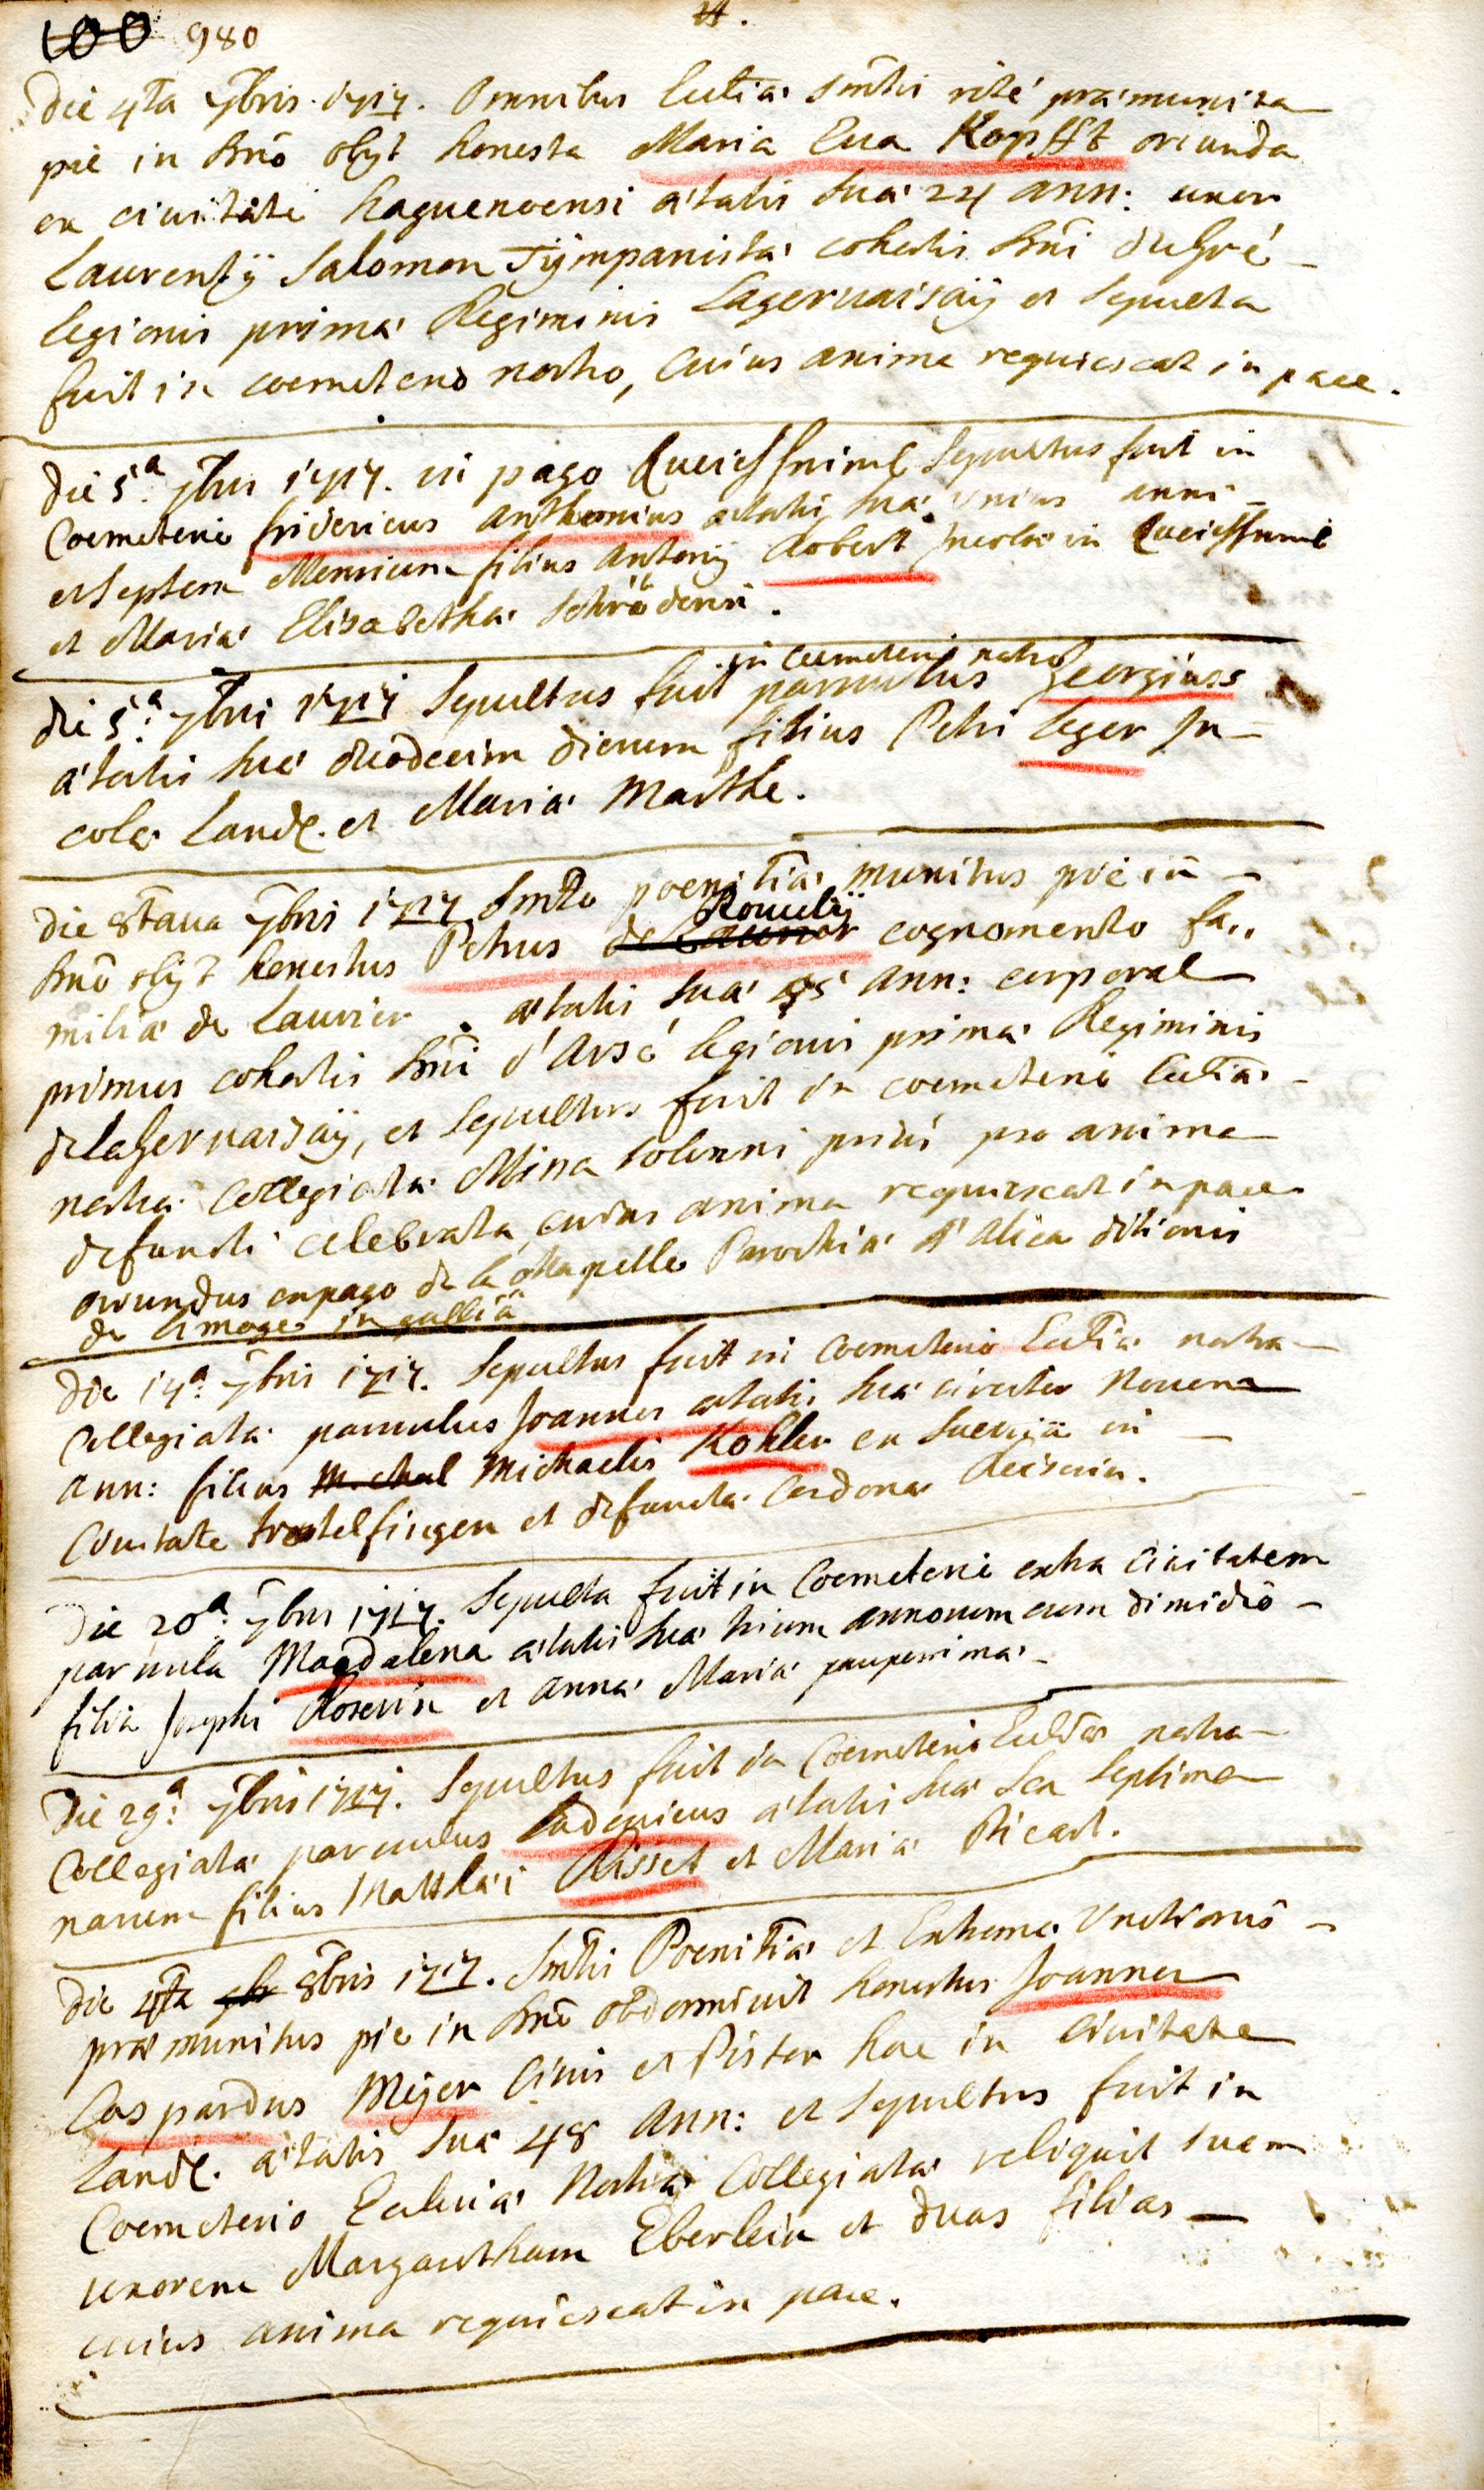 100 980
Die 4ta 7bris 1717. omnibus Ecclia smtis rité præmunita
pie in dno obyt honesta Maria Eua Kopfft oriunda
ex ciuitate haguenoensi ætatis suæ 24 ann: uxor
Laurentÿ Salomon Tÿmpanista cohortis dni
legionis primæ Regiminis Lageruaisaÿ et sepulta
fuit in coemeterio nostro, cuius anima requiescat in pace.
die 5.a 7bris 1717. in pago Sepultus fuit in
Coemeterio fridericus anthonius ætatis suæ unius anni
et septem Mensium filius antonÿ Robert Incolæ in
et Mariæ Elisabethæ Schröderin.
in coemeterio nostro
die 5.a 7bris 1717 Sepultus fuit paruulus Georgiuss
ætatis suæ duodecim dierum filius Petri Leger In-
colæ Land. et Mariæ Marthe.
Die 8taua 7bris 1717 Smto poenitiæ munitus pie in
Romelÿ
dno obyt honestus Petrus cognomento fa,,
miliæ de Laurier. ætatis suæ ann: corporal
primus cohortis dni d'Arsé legionis primæ Regiminis
delageruaisaÿ, et sepultus fuit in coemeterio Ecclia
nostræ Collegiatæ Missa solenni priùs pro anima
defuncti celebrata, cuius anima requiescat in pace
oriundus ex pago de la Parochiæ d'Alica ditionis
de limoge in galliä
Die 17a. 7bris 1717. Sepultus fuit in Coemeterio Ecclia nostræ
Collegiatæ paruulus Joannes ætatis suæ circiter Nouem
ann: filius Michael Michaelis Kohler ex Sueuiä in
Ciuitate trochtelfingen et defunctæ Cordonæ
Die 20a. 7bris 1717. Sepulta fuit in Coemeterio extra ciuitatem
paruula Magdalena ætatis suæ trium annorum cum dimidiô
filia Josephi Roserin et annæ Mariæ pauperrimæ
Die 29.a 7bris 1717. Sepultus fuit in Coemeterio Eccliæ nostræ
Collegiatæ paruulus Ludouicus ætatis suæ sex septima-
narum filius Matthæi Risset et Mariæ Picart.
Die 4ta 8bris 1717. Smtis Poenitiæ et Extremæ Unctionis
præmunitus pie in dno obdormiuit honestus Joannes
Caspardus Meÿer Ciuis et Pistor hac in Ciuitate
Land. ætatis suæ 48 Ann: et sepultus fuit in
Coemeterio Ecclesiæ Nostræ Collegiatæ reliquit suam
uxorem Margaretham Eberlein et duas filias
cuius anima requiescat in pace.